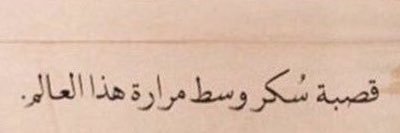 قصبة سُكر وسط مرارة هذا العالم.